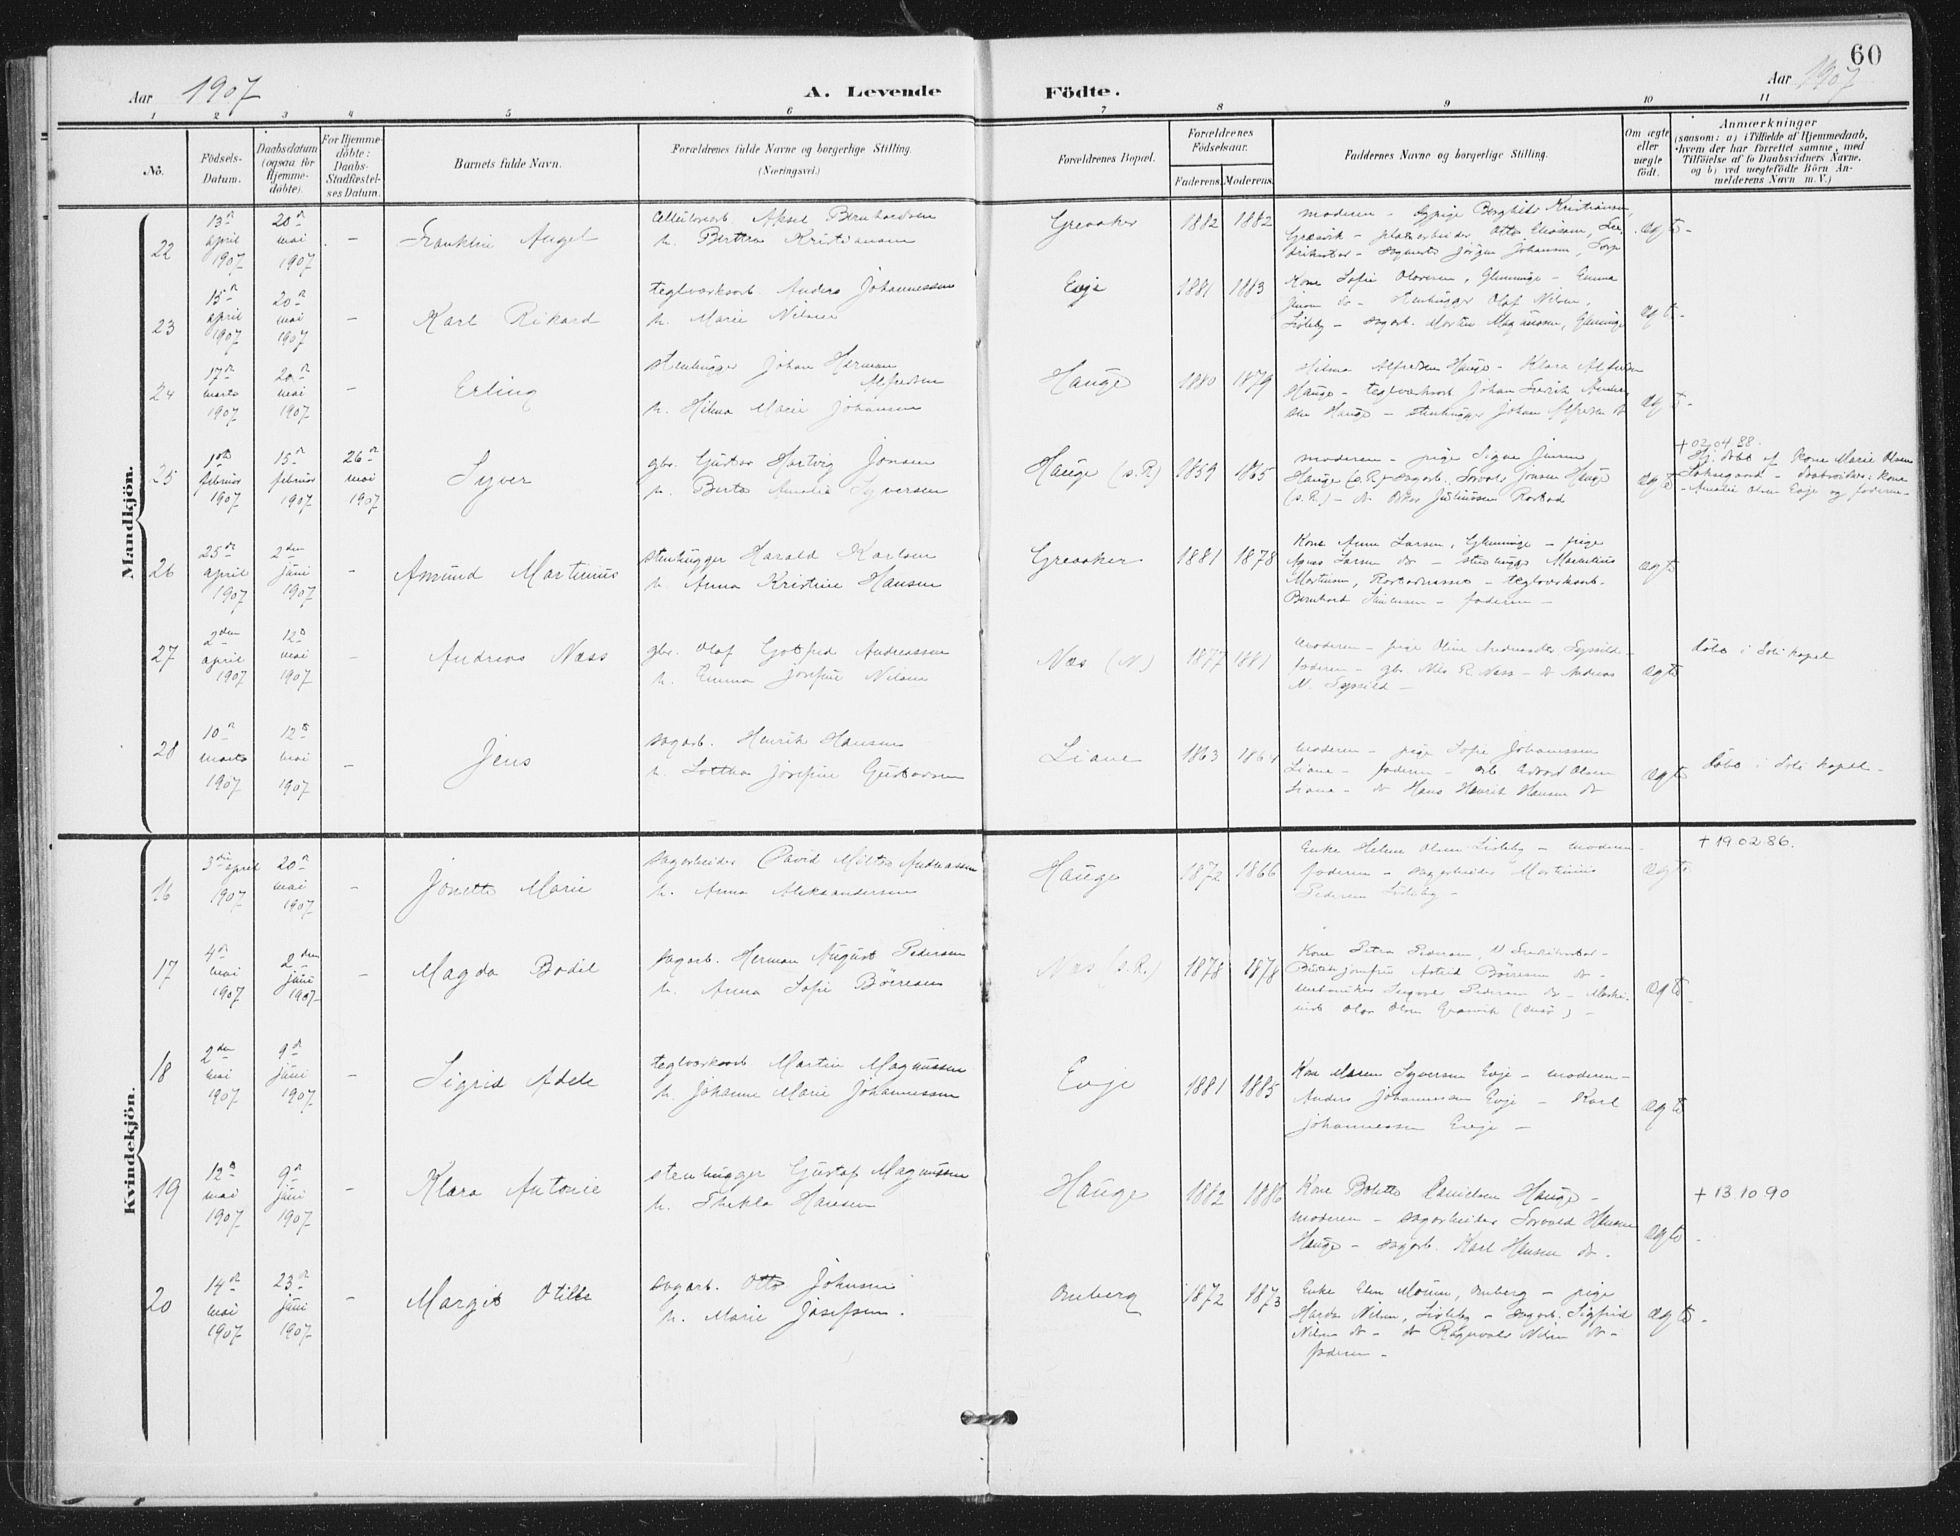 60
Aar 1907
A. Levende
Födte.
Aar 1907
1 2 3 4 5 6 7 8 9 10 11
No.
Födsels-
Datum.
Daabsdatum
(ogsaa for
Hjemme-
døbte).
For Hjemme-
døbte:
Daabs-
Stadfæstel-
ses Datum.
Barnets fulde Navn.
Forældrenes fulde Navne og borgerlige Stilling.
(Næringsvei.)
Forældrenes Bopæl.
Forældrenes
Födselsaar.
Faderens. Moderens.
Faddernes Navne og borgerlige Stilling.
Om ægte
eller
uægte
födt.
Anmærkninger
(saasom: a) i Tilfælde af Hjemmedaab,
hvem der har forrettet samme, med
Tilföielse af to Daabsvidners Navne,
og b) ved uægtefödte Börn An-
melderens Navn m. V.)
Mandkjön.
22
13de april 1907
20de mai 1907
-
Franklin Angel
Aksel Bernhardsen
h. Berthe Kristiansen
Greaaker
1882 1882
moderen - pige Borghild Kristiansen,
Græsvik - Otto
Jørgen Johansen,
ægte
23
15de april 1907
20de mai 1907
-
Karl Rikard
teglværksarb Anders Johannessen
h. Marie Nilsen
Evje
1881 1883
Kone Sofie Olavesen, Glemminge - Emma
Jensen do - stenhugger Olaf Nilsen,
Lisleby - sagarb. Morten Magnussen, Glemminge
ægte
24
17de marts 1907
20de mai 1907
-
Erling
stenhugger Johan Herman
Alfredsen
h. Hilma Marie Johansen
Hauge
1880 1879
Hilma Alfredsen Hauge - Klara
Hauge - teglværksarb Johan Fredrik Andre-
sen Hauge - stenhugger Johan Alfredsen do
ægte
25
1ste februar 1907
15de februar 1907
26de mai 1907
Syver
gbr. Gustav Hartvig Jonsen
h. Berte Amalie Syversen
Hauge (s.R)
1859 1865
moderen - pige Signe Jensen
Hauge (s.R) - sagarb. Torvald Jonsen Hauge
(s.R) - do Oskar Juliussen Rostad
ægte
+02 04 88.
Hj. døbt af Kone Marie Olsen
- daabsvidner: Kone
Amalie Olsen Evje og faderen-
26
25de april 1907
2den juni 1907
-
Amund Martinius
stenhugger Harald Karlsen
h. Anna Kristine Hansen
Greaaker
1881 1878
Kone Anne Larsen, Glemminge - pige
Agnes Larsen do - stenhugger Martinius
Mortensen, - teglværksarb.
Bernhard - faderen -
ægte
27
2den april 1907
12te mai 1907
-
Andreas Næss
gbr. Olaf Gotfred Andreassen
h. Emma Josefine Nilsen
Næs (N.)
1877 1881
moderen - pige Oline
faderen - gbr. Nils R. Næss - do Andreas
N.
ægte
døbt i Soli kapel
28
10de marts 1907
12te mai 1907
-
Jens
sagarb. Henrik Hansen
h. Lotthe Josefine Gustavsen
Liane
1863 1864
moderen - pige Sofie Johannessen
Liane - faderen - arb Edvard Olsen
Liane - do Hans Henrik Hansen do
ægte
døbt i Soli kapel -
Kvindekjön.
16
3die april 1907
20de mai 1907
-
Jonette Marie
sagarbeider David Andreassen
h. Anna Aleksandersen
Hauge
1872 1866
Enke Helene Olsen Lisleby - moderen -
faderen - sagarbeider Martinius
Pedersen Lisleby -
ægte
+ 19 02 86.
17
4de mai 1907
2den juni 1907
-
Magda Bodil
sagarb. Herman August Pedersen
h. Anna Sofie Börresen
Næs (s.R.)
1878 1878
Kone Petra Pedersen,
Astrid Börresen do -
Pedersen do - Maski-
nist Olav Olsen Græsvik (Onsø) -
ægte
18
2den mai 1907
9de juni 1907
-
Sigrid Adele
teglværksarb Martin Magnussen
h. Johanne Marie Johannessen
Evje
1881 1885
Kone Maren Syversen Evje - moderen -
Anders Johannessen Evje - Karl
Johannessen Evje -
ægte
19
12te mai 1907
9de juni 1907
-
Klara Antonie
stenhugger Gustaf Magnussen
h. Thekla Hansen
Hauge
1882 1886
Kone Bolette Danielsen Hauge -
moderen - sagarbeider Torvald Hansen
Hauge - sagarb. Karl Hansen do -
ægte
+ 13 10 90
20
14de mai 1907
23de juni 1907
-
Margit Otilie
sagarb. Otto Johnsen
h. Marie Josefsen.
Omberg
1872 1873
Enke Elen Omberg - pige
Harda Nilsen, Lisleby - sagarb. Sigfrid
Nilsen do - do Ragnvald Nilsen do -
faderen -
ægte